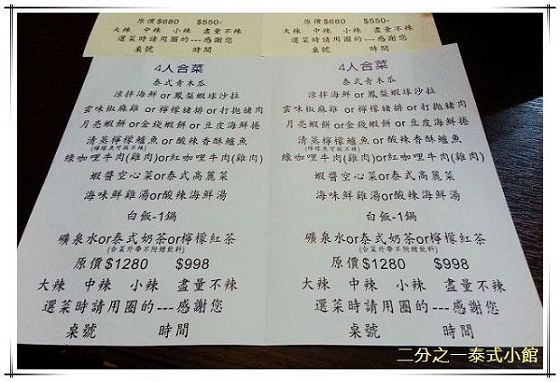 原價$680 $550-
大辣 中辣 小辣 盡量不辣
選菜時請用圈的---感謝您
桌號 時間
原價$680 $550-
大辣 中辣 小辣 盡量不辣
選菜時請用圈的---感謝您
桌號 時間
4人合菜
泰式青木瓜
涼拌海鮮or鳳梨蝦球沙拉
雲味椒麻雞 or檸檬豬排or打拋豬肉
月亮蝦餅or金錢蝦餅or豆皮海鮮捲
清蒸檸檬鱸魚or酸辣香酥鱸魚
(檸檬魚可做不辣)
綠咖哩牛肉(雞肉)or紅咖哩牛肉(雞肉)
蝦醬空心菜or泰式高麗菜
海味鮮雞湯or酸辣海鮮湯
白飯-1鍋
礦泉水or泰式奶茶or檸檬紅茶
(合菜外帶不附贈飲料)
原價$1280 $998
大辣 中辣 小辣 盡量不辣
選菜時請用圈的---感謝您
桌號 時間
4人合菜
泰式青木瓜
涼拌海鮮or鳳梨蝦球沙拉
雲味椒麻雞 or檸檬豬排or打拋豬肉
月亮蝦餅or金錢蝦餅or豆皮海鮮捲
清蒸檸檬鱸魚or酸辣香酥鱸魚
(檸檬魚可做不辣)
綠咖哩牛肉(雞肉)or紅咖哩牛肉(雞肉)
蝦醬空心菜or泰式高麗菜
海味鮮雞湯or酸辣海鮮湯
白飯-1鍋
礦泉水or泰式奶茶or檸檬紅茶
(合菜外帶不附贈飲料)
原價$1280 $998
大辣 中辣 小辣 盡量不辣
選菜時請用圈的---感謝您
桌號 時間
二分之一泰式小館